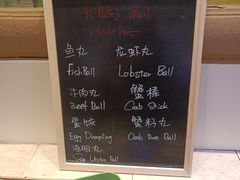 火锅 涮
Hot Pot
鱼丸 龙虾丸
fish Ball Lobster Ball
牛肉丸 蟹棒
Beef Ball Crab Stick
蛋饺 蟹籽丸
Egg Dumpling Crab Roe Ball
海胆丸
Sea Urchin Ball